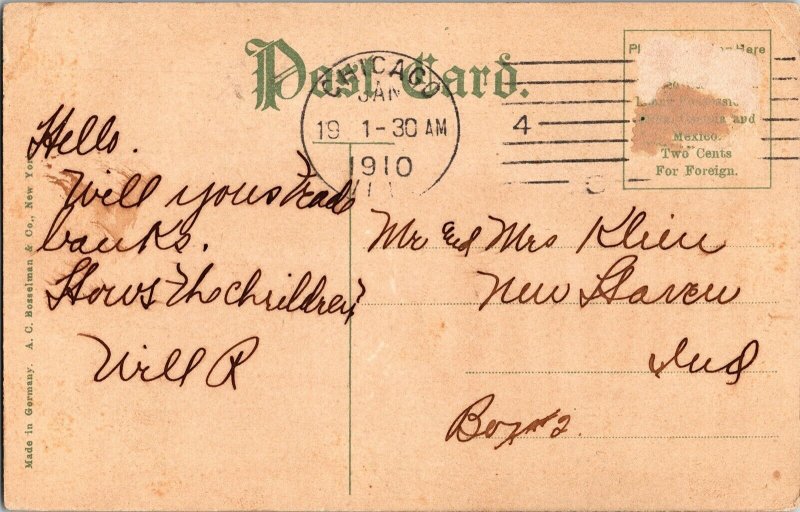 Post Card.
CHICAGO
JAN
19 1-30 AM
1910
ILL
4
Here
and
Mexico.
Two Cents
For Foreign.
Made in Germany. A. C. Bosselman & Co., New York
Hello.
Will you trade
banks.
Hows the children?
Will R
Mr and Mrs Klien
New Haven
Ind
Box #2